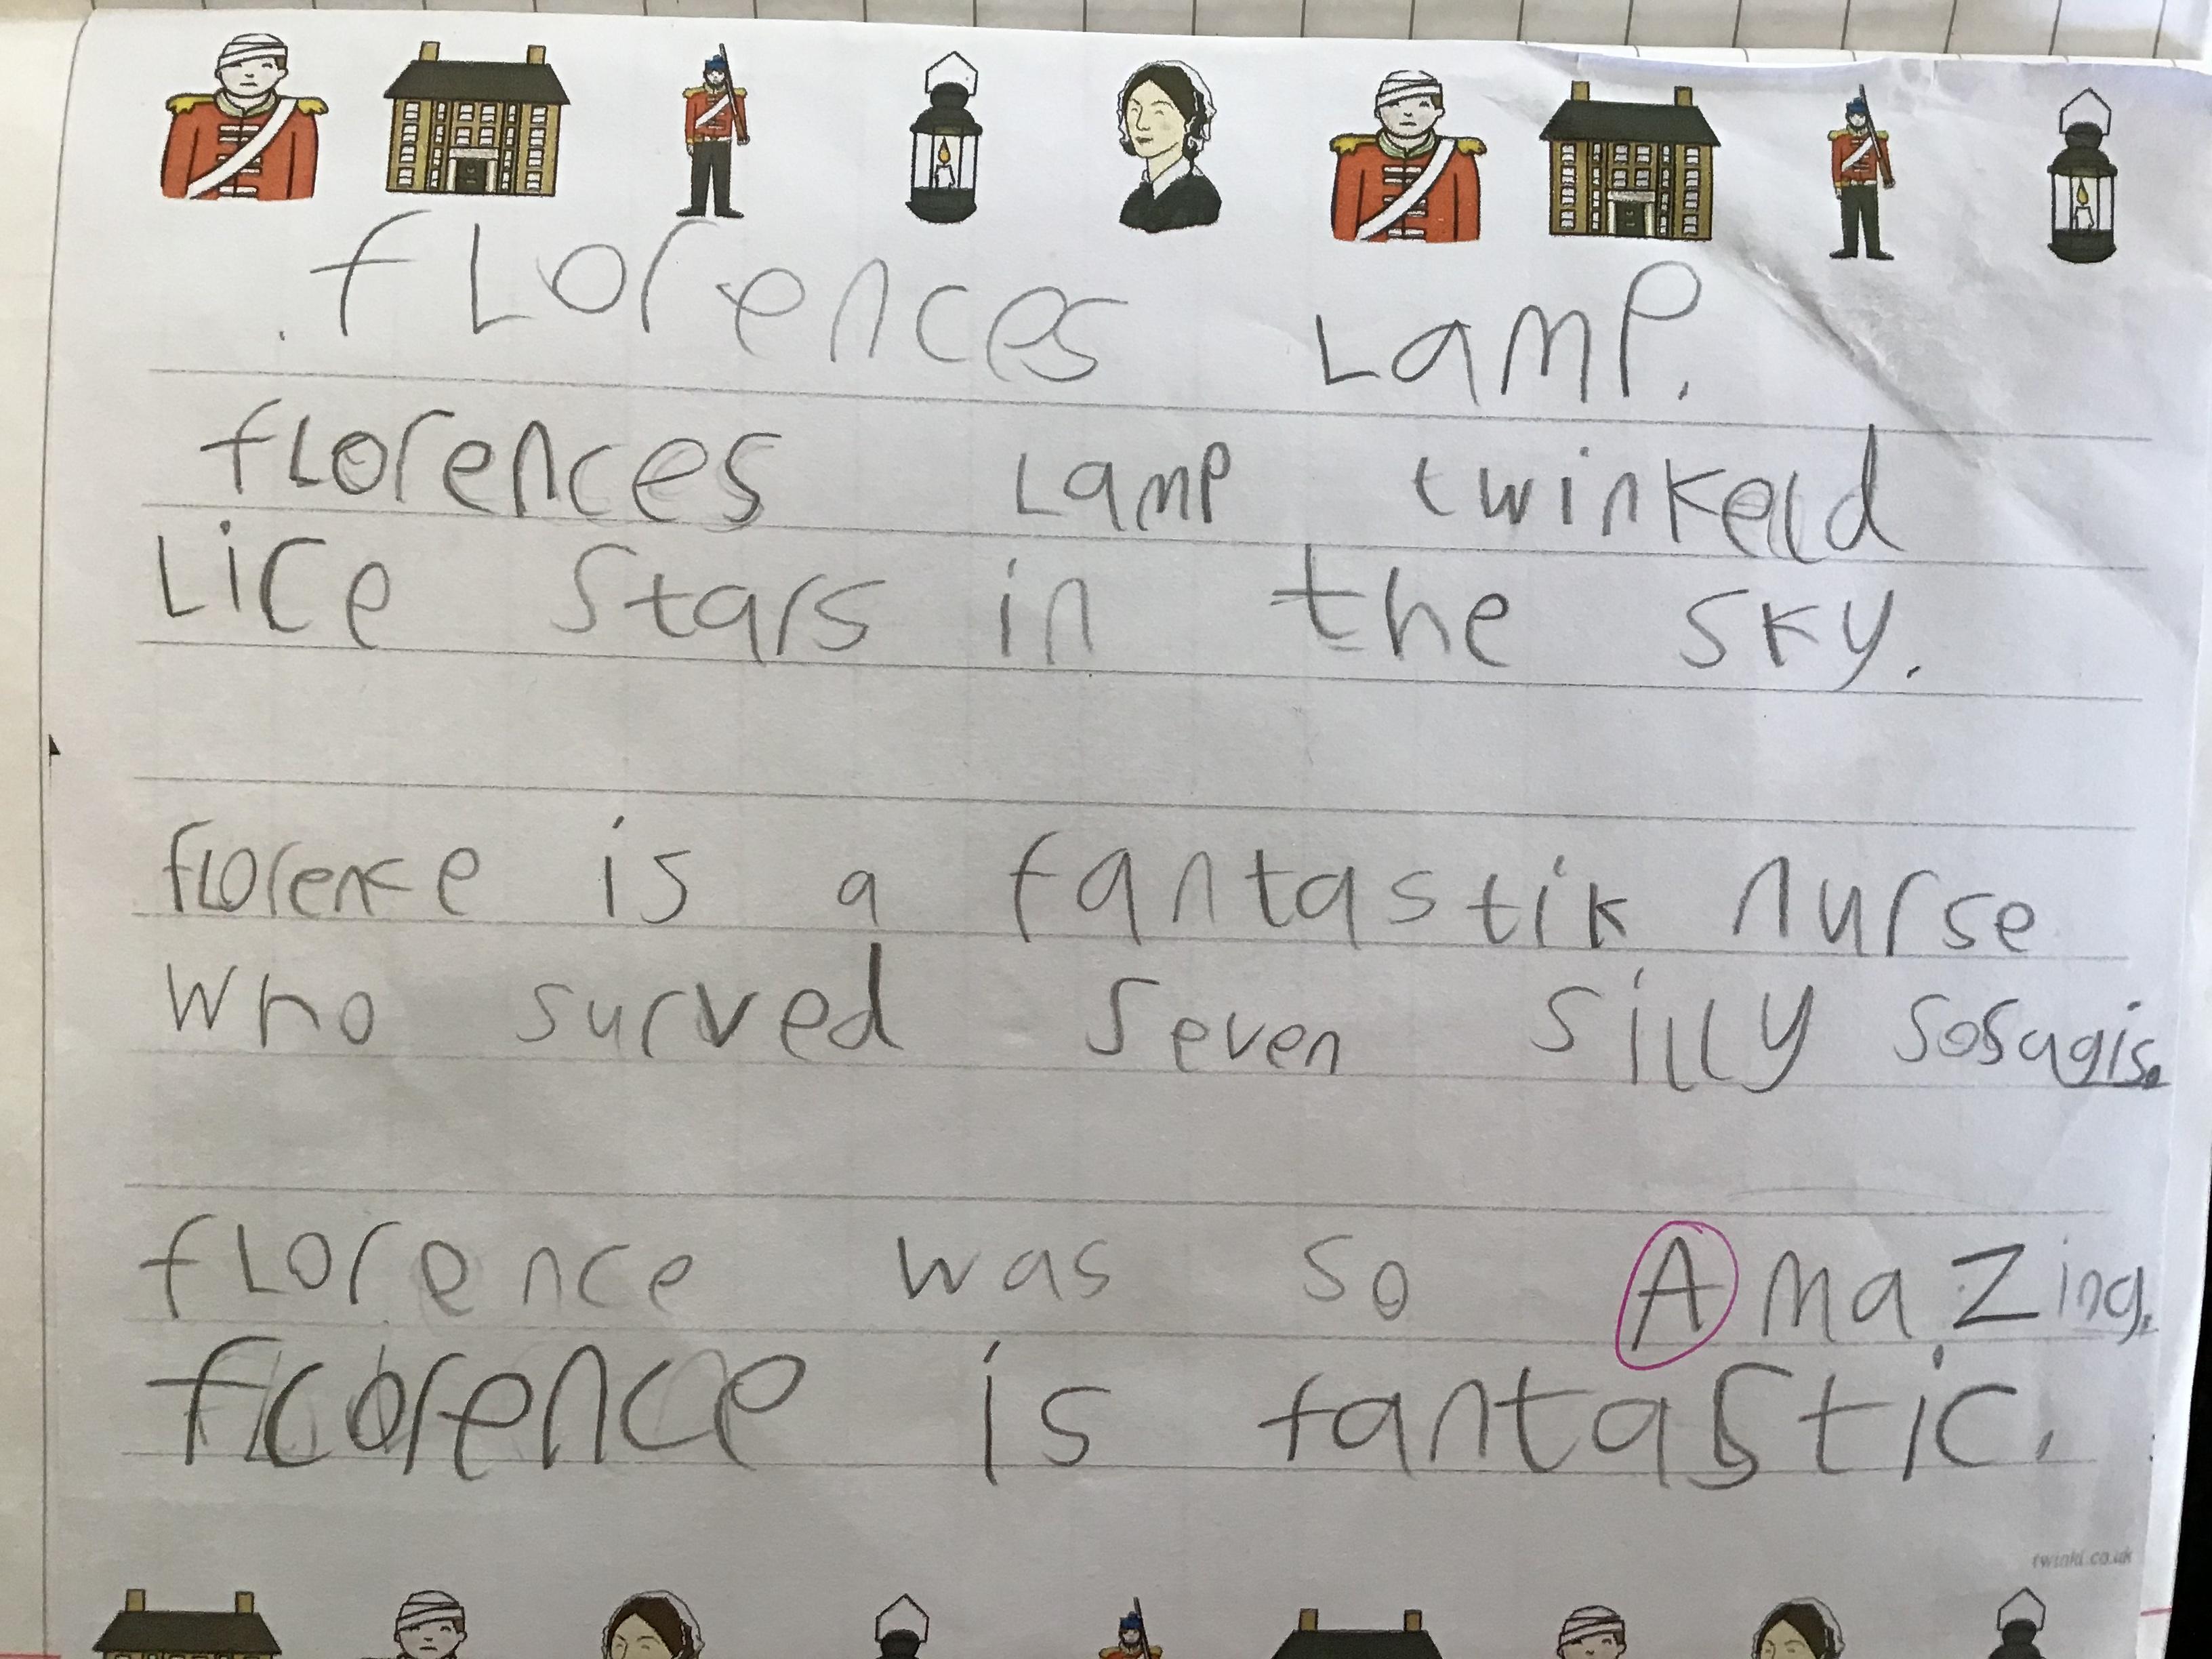 fLorences Lamp.
fLorences Lamp twinkeld
Lice stars in the sky.
fLorence is a fantastik nurse
who surved seven silly sosagis.
fLorence was so Amazing.
fLorence is fantastic.
twinkl.co.uk